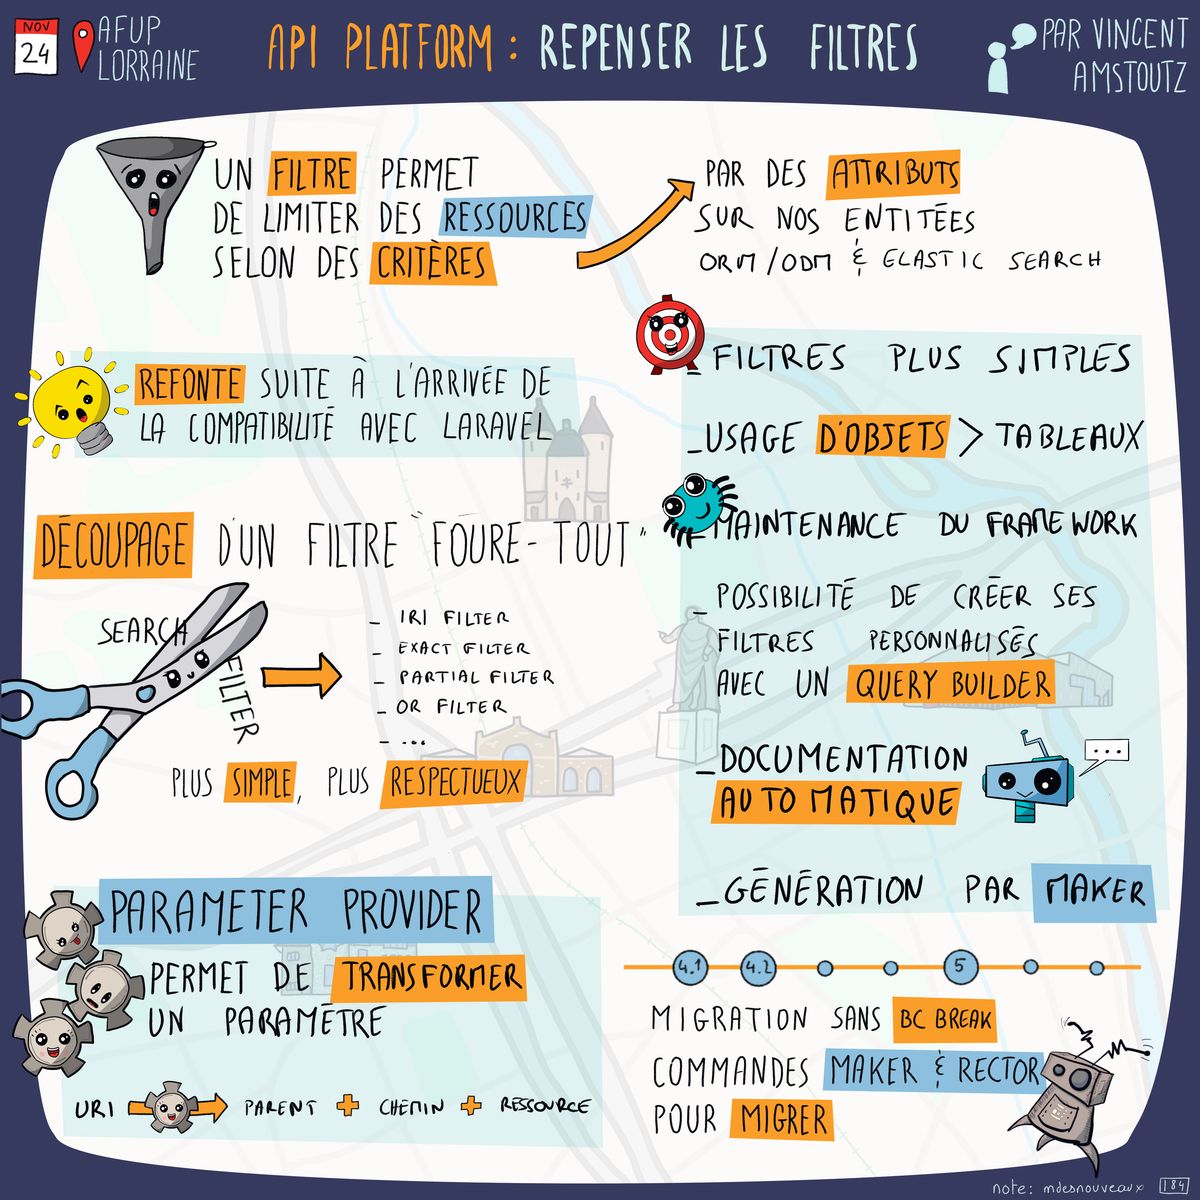 NOV
24
AFUP
LORRAINE
API PLATFORM : REPENSER LES FILTRES
PAR VINCENT
AMSTOUTZ
UN FILTRE PERMET
DE LIMITER DES RESSOURCES
SELON DES CRITÈRES
PAR DES ATTRIBUTS
SUR NOS ENTITÉES
ORM/ODM & ELASTIC SEARCH
REFONTE SUITE À L'ARRIVÉE DE
LA COMPATIBILITÉ AVEC LARAVEL
DÉCOUPAGE D'UN FILTRE "FOURE-TOUT"
SEARCH
FILTER
_ IRI FILTER
_ EXACT FILTER
_ PARTIAL FILTER
_ OR FILTER
_ ...
PLUS SIMPLE, PLUS RESPECTUEUX
PARAMETER PROVIDER
PERMET DE TRANSFORMER
UN PARAMÈTRE
URI
PARENT + CHEMIN + RESSOURCE
_ FILTRES PLUS SIMPLES
_ USAGE D'OBJETS > TABLEAUX
_ MAINTENANCE DU FRAMEWORK
_ POSSIBILITÉ DE CRÉER SES
FILTRES PERSONNALISÉS
AVEC UN QUERY BUILDER
_ DOCUMENTATION
AUTOMATIQUE
...
_ GÉNÉRATION PAR MAKER
4.1 4.2 5
MIGRATION SANS BC BREAK
COMMANDES MAKER & RECTOR
POUR MIGRER
note: mdesnouveaux 184